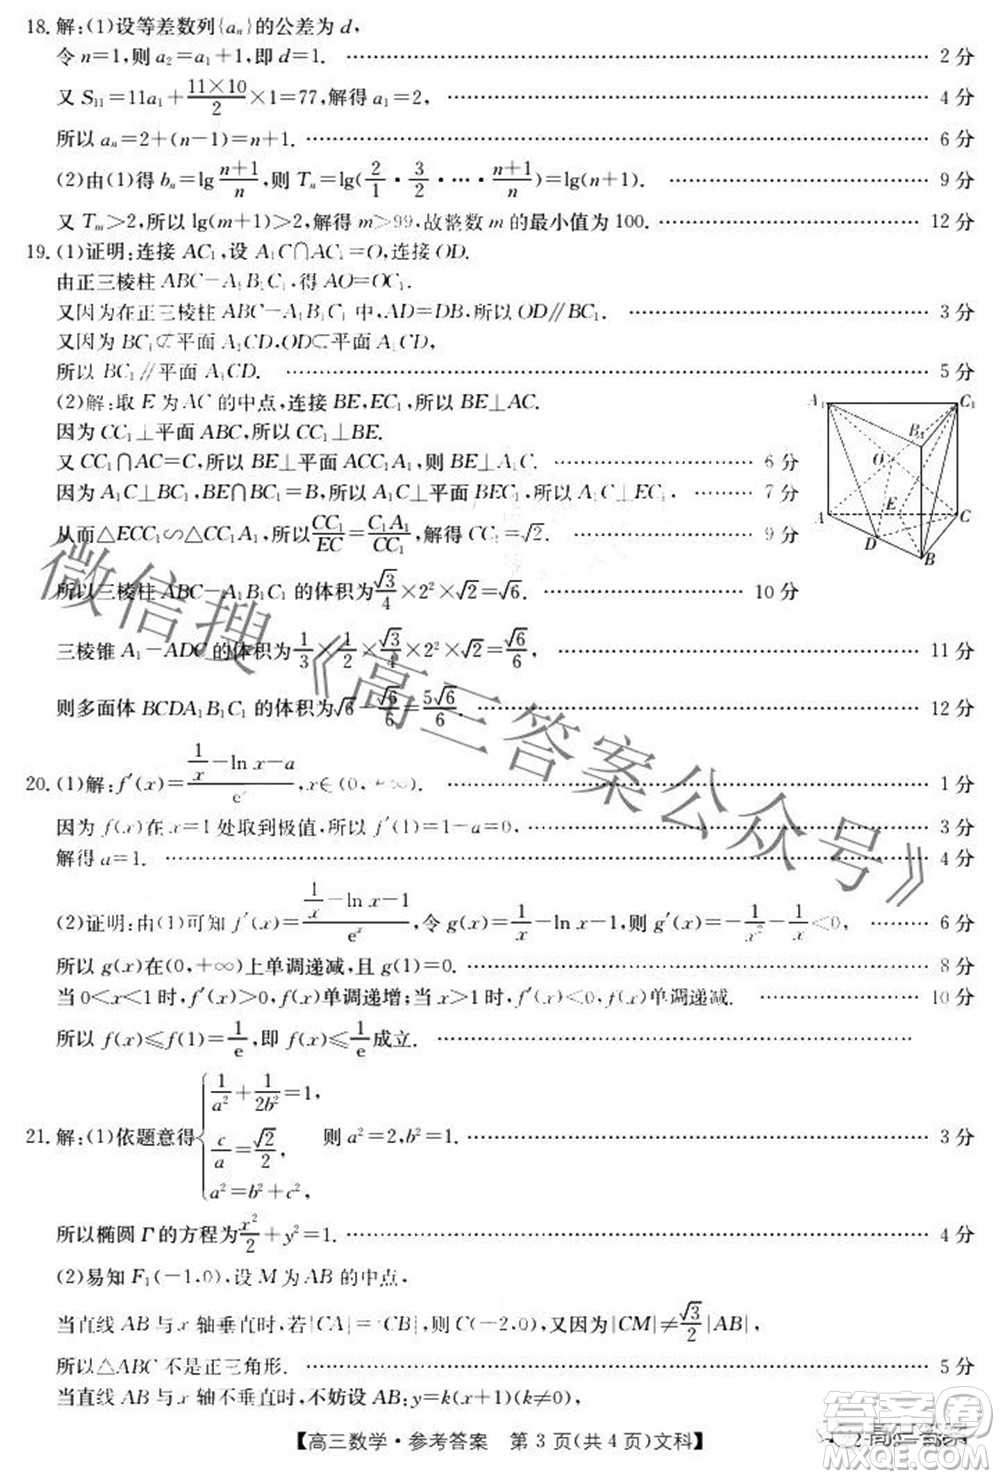 18. 解:(1)设等差数列{aₙ}的公差为 d,
令 n=1,则 a₂=a₁+1,即 d=1. 2 分
又 S₁₁=11a₁+(11×10)/2×1=77,解得 a₁=2, 4 分
所以 aₙ=2+(n−1)=n+1. 6 分
(2)由(1)得 bₙ=lg (n+1)/n,则 Tₙ=lg(2/1·3/2·…·(n+1)/n)=lg(n+1). 9 分
又 Tₘ>2,所以 lg(m+1)>2,解得 m>99,故整数 m 的最小值为 100. 12 分
19. (1)证明:连接 AC₁,设 A₁C∩AC₁=O,连接 OD.
由正三棱柱 ABC−A₁B₁C₁,得 AO=OC₁.
又因为在正三棱柱 ABC−A₁B₁C₁ 中,AD=DB,所以 OD∥BC₁. 3 分
又因为 BC₁⊄平面 A₁CD,OD⊂平面 A₁CD,
所以 BC₁∥平面 A₁CD. 5 分
(2)解:取 E 为 AC 的中点,连接 BE,EC₁,所以 BE⊥AC.
因为 CC₁⊥平面 ABC,所以 CC₁⊥BE.
又 CC₁∩AC=C,所以 BE⊥平面 ACC₁A₁,则 BE⊥A₁C. 6 分
因为 A₁C⊥BC₁,BE∩BC₁=B,所以 A₁C⊥平面 BEC₁,所以 A₁C⊥EC₁, 7 分
从而△ECC₁∽△CC₁A₁,所以 CC₁/EC=C₁A₁/CC₁,解得 CC₁=√2. 9 分
所以三棱柱 ABC−A₁B₁C₁ 的体积为 √3/4×2²×√2=√6. 10 分
三棱锥 A₁−ADC 的体积为 1/3×1/2×√3/4×2²×√2=√6/6, 11 分
则多面体 BCDA₁B₁C₁ 的体积为 √6−√6/6=5√6/6. 12 分
A₁
C₁
B₁
O
A
E
C
D
B
20. (1)解:f′(x)=(1/x−ln x−a)/eˣ,x∈(0,+∞). 1 分
因为 f(x)在 x=1 处取到极值,所以 f′(1)=1−a=0, 3 分
解得 a=1. 4 分
(2)证明:由(1)可知 f′(x)=(1/x−ln x−1)/eˣ,令 g(x)=1/x−ln x−1,则 g′(x)=−1/x²−1/x<0, 6 分
所以 g(x)在(0,+∞)上单调递减,且 g(1)=0. 8 分
当 0<x<1 时,f′(x)>0,f(x)单调递增;当 x>1 时,f′(x)<0,f(x)单调递减. 10 分
所以 f(x)≤f(1)=1/e,即 f(x)≤1/e 成立.
21. 解:(1)依题意得{1/a²+1/2b²=1, c/a=√2/2, a²=b²+c², 则 a²=2,b²=1. 3 分
所以椭圆 Γ 的方程为 x²/2+y²=1. 4 分
(2)易知 F₁(−1,0),设 M 为 AB 的中点,
当直线 AB 与 x 轴垂直时,若|CA|=|CB|,则 C(−2,0),又因为|CM|≠√3/2|AB|,
所以△ABC 不是正三角形. 5 分
当直线 AB 与 x 轴不垂直时,不妨设 AB:y=k(x+1)(k≠0),
【高三数学·参考答案 第 3 页(共 4 页)文科】
微信搜《高三答案公众号》
答案圈
MXQE.COM